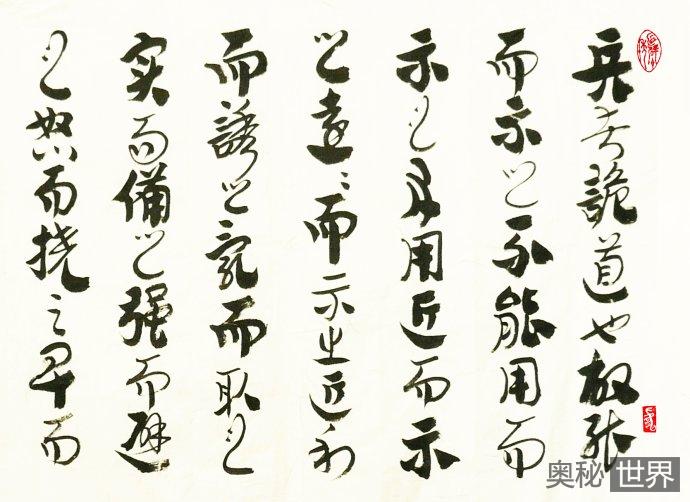 兵者詭道也故能
而示之不能用而
示之不用近而示
之遠々而示之近利
而誘之亂而取之
实而備之强而避
之怒而挠之卑而
奥秘世界